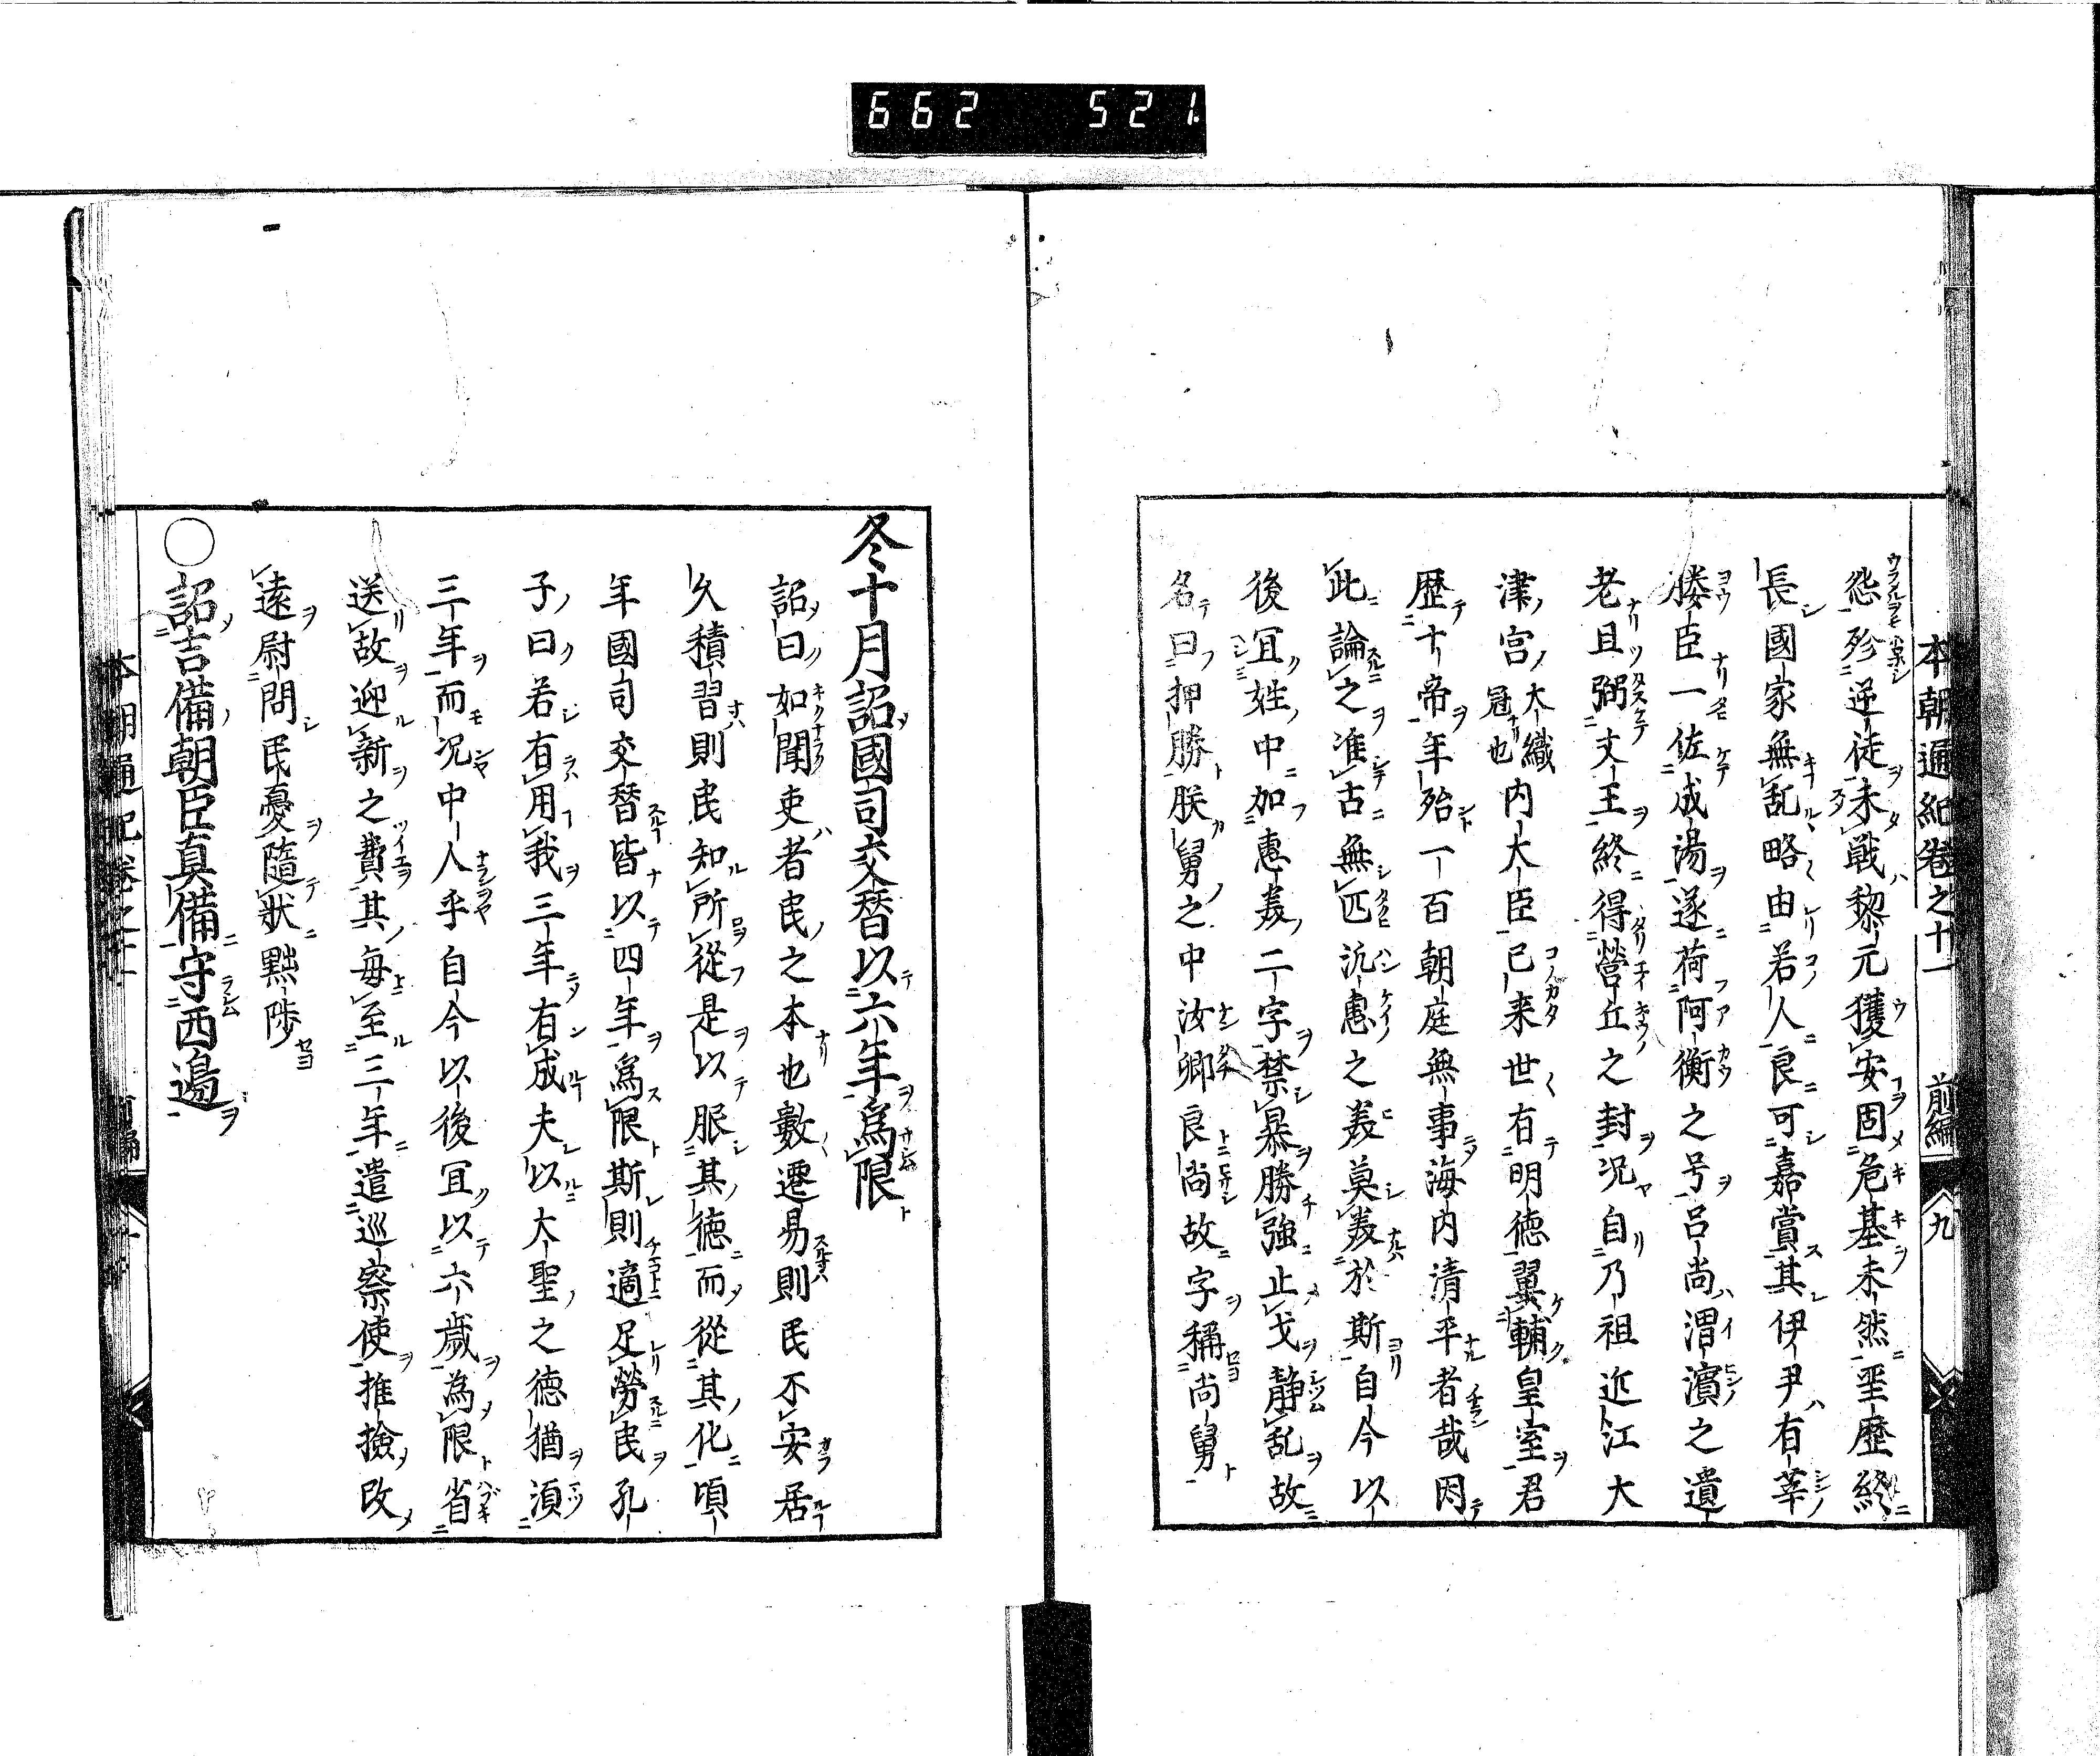 662 521
本朝通紀卷之十一 前編 九
怨殄逆徒未戰黎元獲安固危基未然垩歷終
長國家無乱略由若人良可嘉賞其伊尹有莘
媵臣一佐成湯遂荷阿衡之号呂尚渭濱之遺
老且弼文王終得營丘之封况自乃祖近江大
津宮大織冠也内大臣已来世有明徳翼輔皇室君
歴十帝年殆一百朝庭無事海内清平者哉因
此論之准古無匹汎惠之美莫美於斯自今以
後冝姓中加惠美二字禁暴勝強止戈静乱故
名曰押勝朕舅之中汝卿良尚故字稱尚舅
冬十月詔國司交替以六年爲限
詔曰如聞吏者民之本也數遷易則民不安居
久積習則民知所從是以服其徳而從其化頃
年國司交替皆以四年爲限斯則適足勞民孔
子曰若有用我三年有成夫以大聖之徳猶湏
三年而况中人乎自今以後冝以六歳為限省
送故迎新之費其毎至三年遣巡察使推撿改
遠尉問民憂隨狀黜陟
○詔吉備朝臣真備守西邉
本朝通紀卷之十一 前編